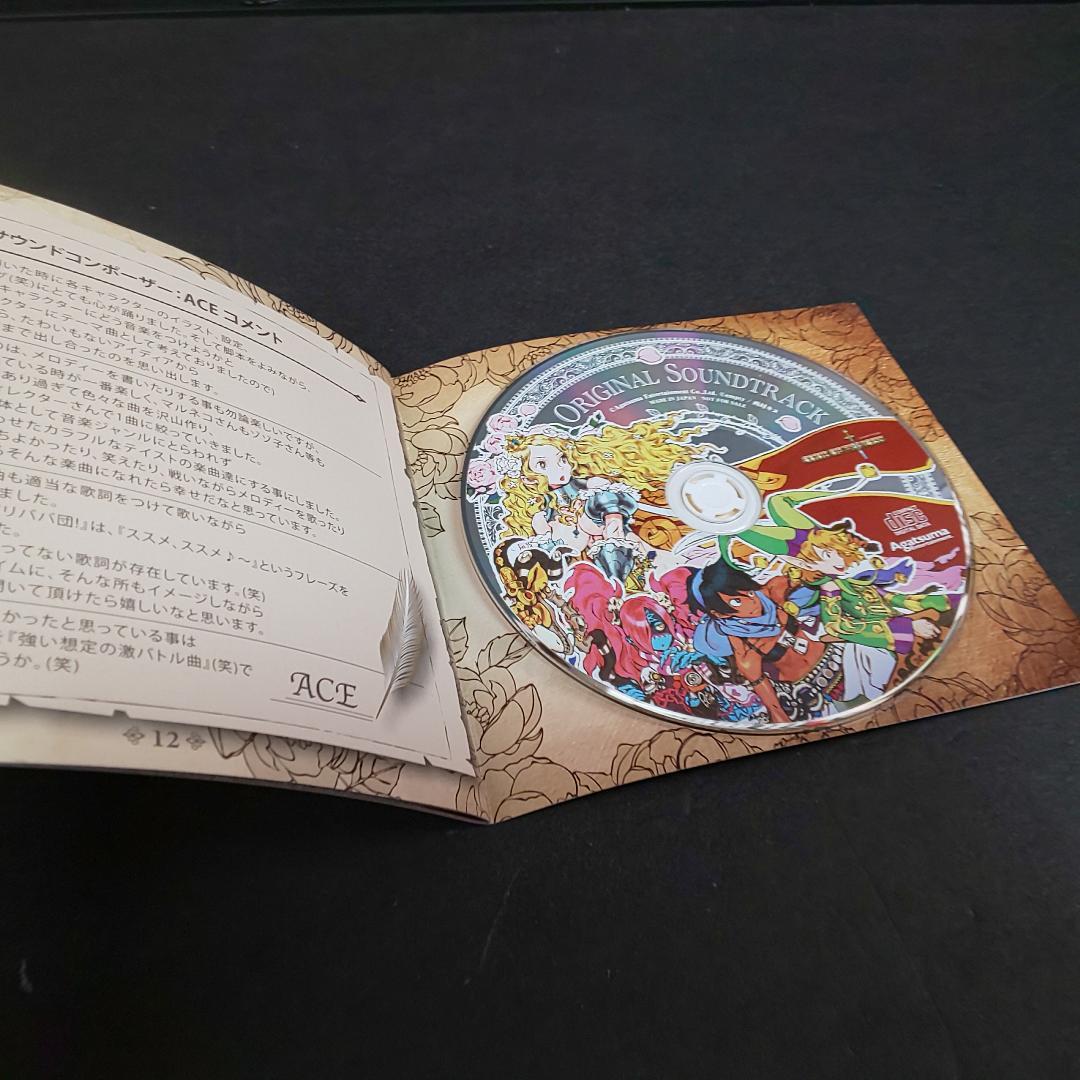 サウンドコンポーザー：ACE コメント
いた時に各キャラクターのイラスト、設定、
(笑)にとても心が踊りました。そして脚本をよみながら、
キャラクターにどう音楽をつけようかと
クターにテーマ曲として考えておりましたので)
ら、たわいもないアイディアから
まで出し合ったのを思い出します。
のは、メロディーを書いたりする事も勿論楽しいですが、
ている時が一番楽しく、マルネコさんもソソ子さん等も
あり過ぎて色々な曲を沢山作り
レクターさんで1曲に絞っていきました。
体として音楽ジャンルにとらわれず
せたカラフルなテイストの楽曲達にする事にしました。
ちよかったり、笑えたり、戦いながらメロディーを歌ったり
そんな楽曲になれたら幸せだなと思っています。
曲も適当な歌詞をつけて歌いながら
ました。
リババ団!』は、『ススメ、ススメ♪〜』というフレーズを
た。
ってない歌詞が存在しています。(笑)
イムに、そんな所もイメージしながら
聞いて頂けたら嬉しいなと思います。
かったと思っている事は
『強い想定の激バトル曲』(笑)で
うか。(笑)
ACE
12
ORIGINAL SOUNDTRACK
MADE IN JAPAN NOT FOR SALE
COMPACT
disc
DIGITAL AUDIO
Agatsuma